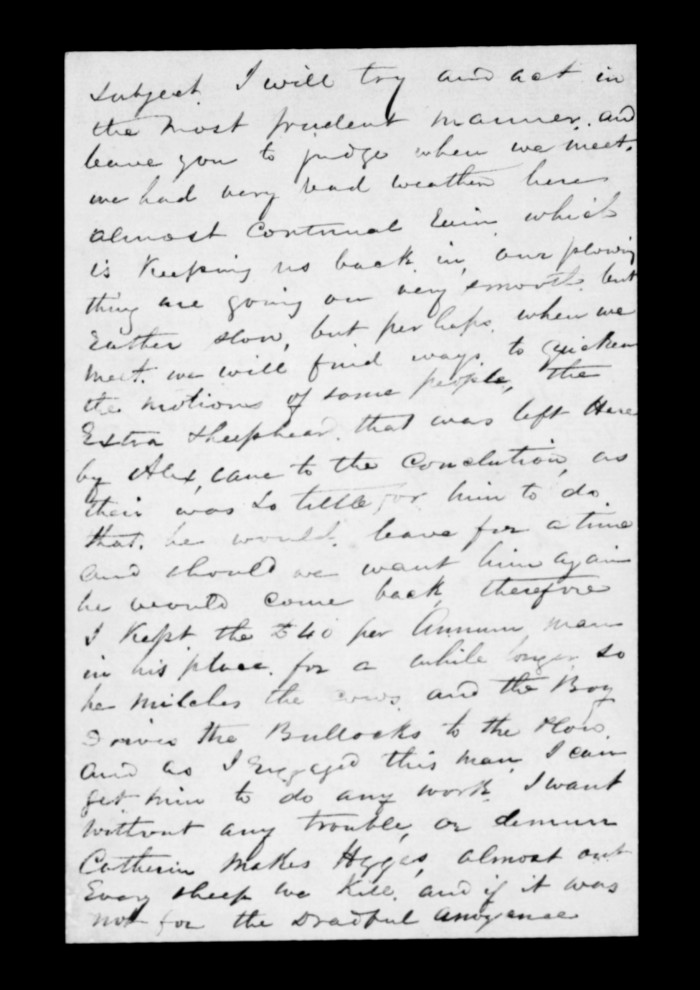 subject. I will try and act in
the most prudent manner. and
leave you to judge when we meet.
we had very bad weather here
almost continual Rain which
is Keeping us back in our plowing
thing are going on very smooth. but
Rather slow, but perhaps when we
meet. we will find ways to quicken
the motions of some people, the
Extra Shephear. that was left Here
by Alex, came to the Conclution, as
their was so little for him to do.
that. he would. leave for a time
and should we want him again
he would come back, therefore
I Kept the £40 per Annum man
in his place. for a while longer so
he milches the cows. and the Boy
Drives the Bullocks to the Plow.
and as I Engaged this man I can
get him to do any work I want
without any trouble, or demur
Catherin makes Hggis, almost out
Evary sheep we Kill. and if it was
not for the Dradful anoyance